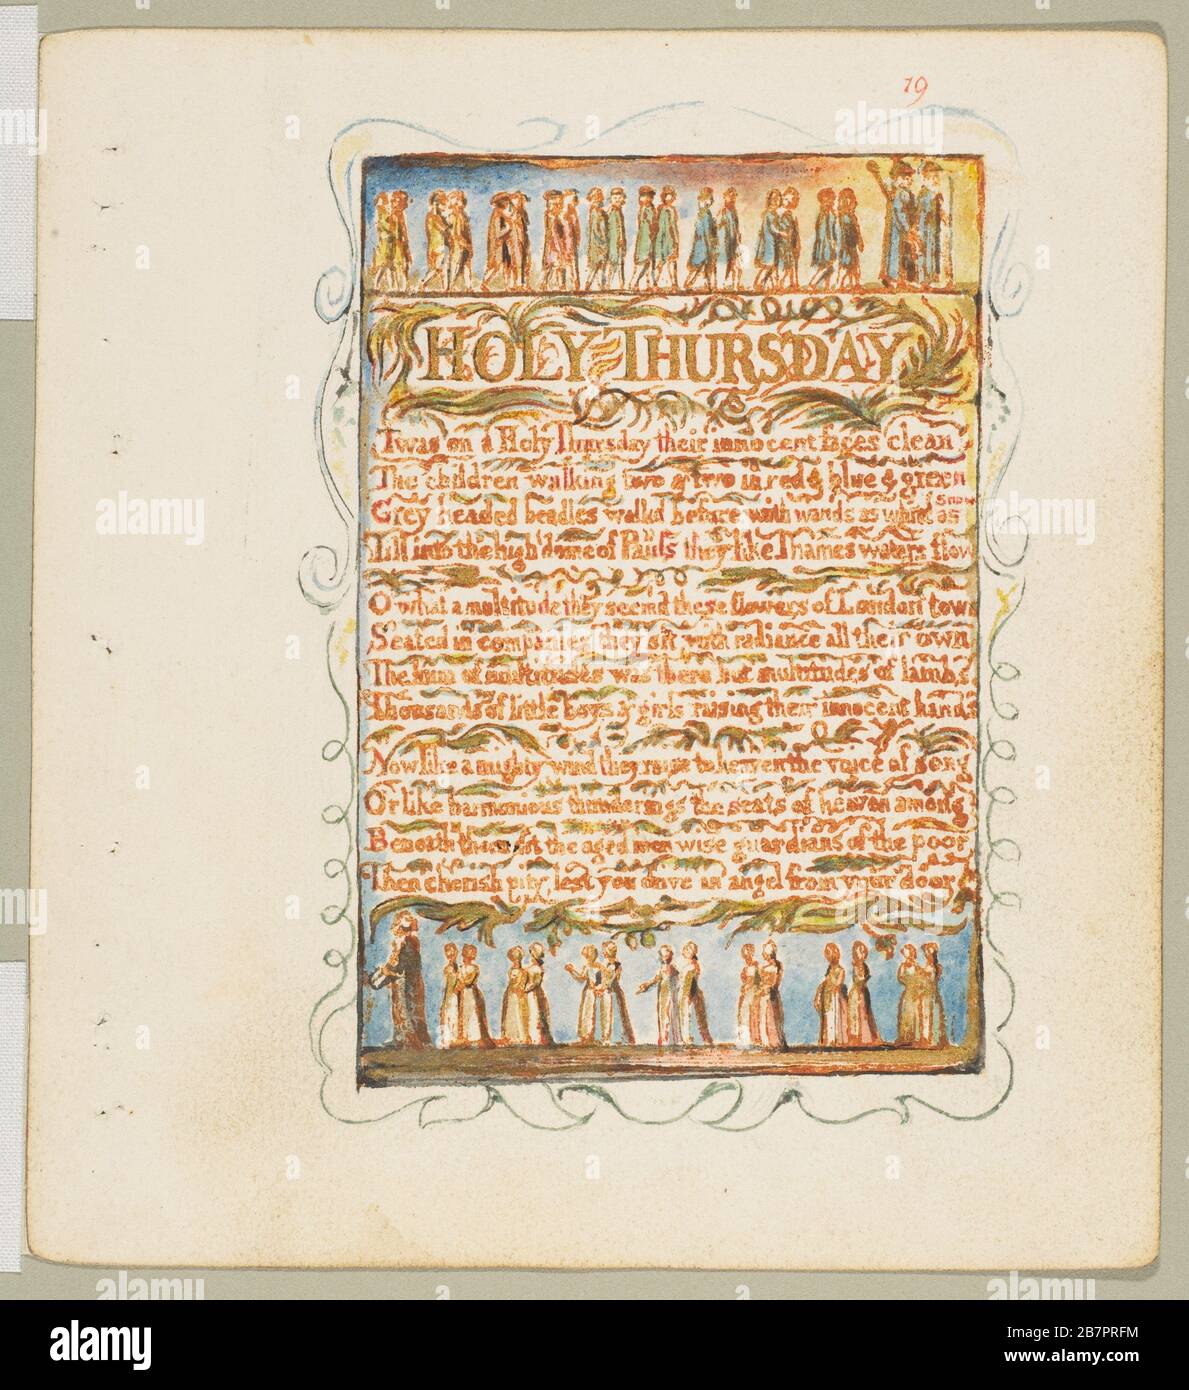 19
HOLY THURSDAY
Twas on a Holy Thursday their innocent faces clean
The children walking two & two in red & blue & green
Grey headed beadles walkd before with wands as white as snow
Till into the high dome of Pauls they like Thames waters flow
O what a multitude they seemd these flowers of London town
Seated in companies they sit with radiance all their own
The hum of multitudes was there but multitudes of lambs
Thousands of little boys & girls raising their innocent hands
Now like a mighty wind they raise to heaven the voice of song
Or like harmonious thunderings the seats of heaven among
Beneath them sit the aged men wise guardians of the poor
Then cherish pity, lest you drive an angel from your door
alamy
Image ID: 2B7PRFM
www.alamy.com